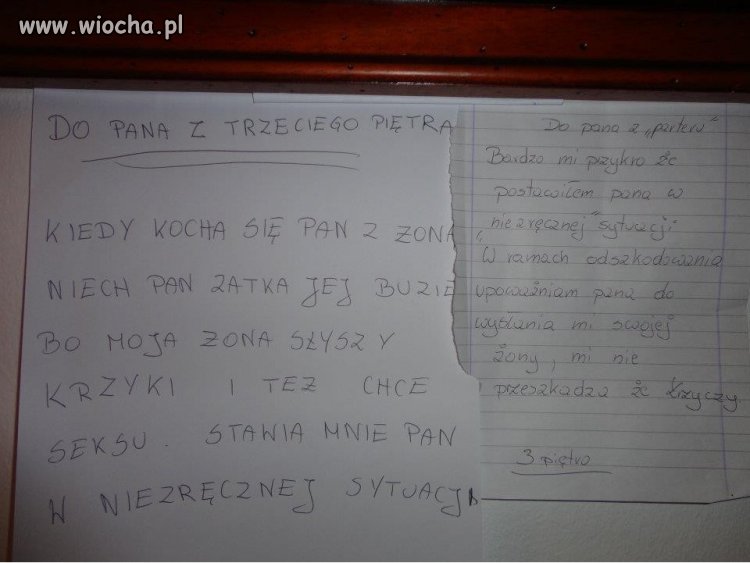 www.wiocha.pl
DO PANA Z TRZECIEGO PIĘTRA
KIEDY KOCHA SIĘ PAN Z ŻONĄ
NIECH PAN ZATKA JEJ BUZIE
BO MOJA ŻONA SŁYSZY
KRZYKI I TEZ CHCE
SEKSU. STAWIA MNIE PAN
W NIEZRĘCZNEJ SYTUACJI
Do pana z „parteru"
Bardzo mi przykro że
postawiłem pana w
„niezręcznej" sytuacji"
W ramach odszkodowania
upoważniam pana do
wysłania mi swojej
żony, mi nie
przeszkadza że krzyczy.
3 piętro